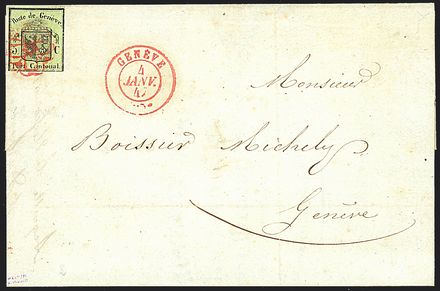 Poste de Genève
5 C
Port Cantonal.
GENÈVE
4
JANV.
47
Monsieur
Boissier Michely
Genève